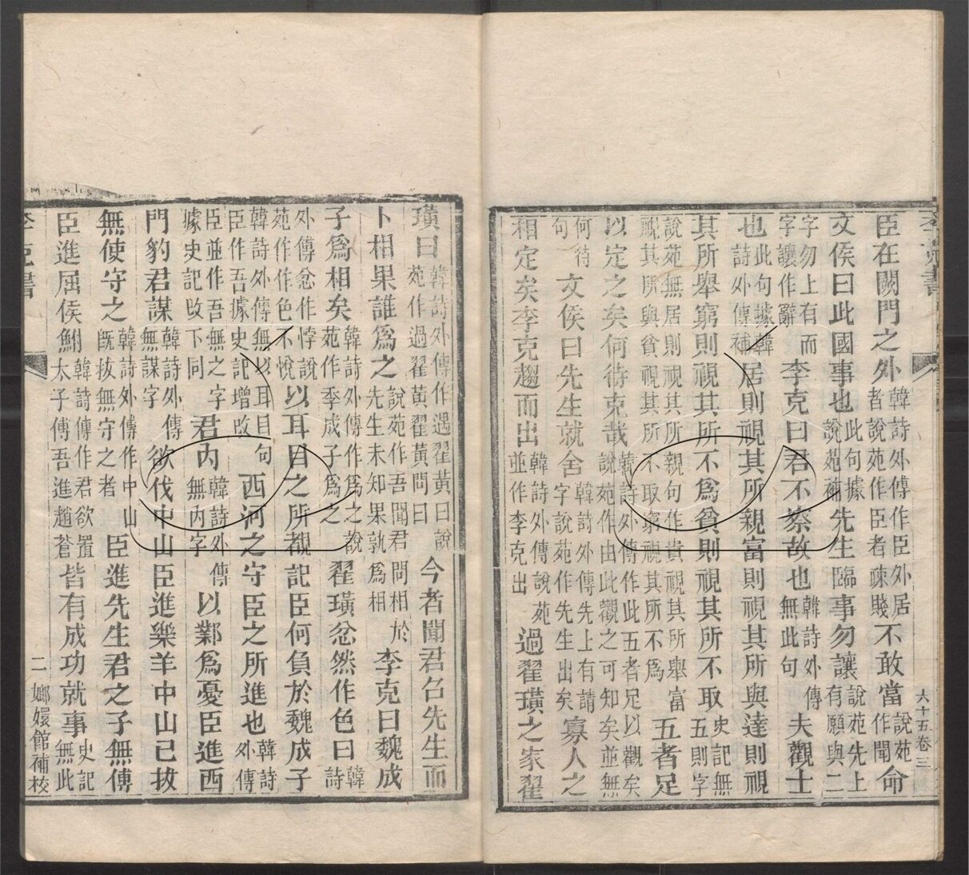 臣在闕門之外韓詩外傳作臣外居者說苑作臣者疎賤不敢當說苑作聞命
文侯曰此國事也此句據說苑補先生臨事勿讓說苑先上有願與二
字勿上有而字讓作辭李克曰君不察故也韓詩外傳無此句夫觀士
也此句據韓詩外傳補居則視其所親富則視其所與達則視
其所舉窮則視其所不爲貧則視其所不取史記無五則字
說苑無居則視其所親句作貴視其所舉富視其所與貧視其所不取窮視其所不爲五者足
以定之矣何待克哉韓詩外傳作此五者足以觀矣說苑作由此觀之可知矣並無
何待句文侯曰先生就舍韓詩外傳先上有請字說苑作先生出矣寡人之
相定矣李克趨而出韓詩外傳說苑並作李克出過翟璜之家翟
璜曰韓詩外傳作遇翟黃曰說苑作過翟黃翟黃問曰今者聞君召先生而
卜相果誰爲之說苑作吾聞君問相於先生未知果孰爲相李克曰魏成
子爲相矣韓詩外傳作爲之說苑作季成子爲之翟璜忿然作色曰韓詩
外傳忿作悖說苑作作色不悅以耳目之所覩記臣何負於魏成子
韓詩外傳無以耳目句臣作吾據史記增改西河之守臣之所進也韓詩外傳
臣並作吾無之字據史記改下同君內韓詩外傳無內字以鄴爲憂臣進西
門豹君謀韓詩外傳無謀字欲伐中山臣進樂羊中山已拔
無使守之韓詩外傳作中山既拔無守之者臣進先生君之子無傳
臣進屈侯鮒韓詩傳作君欲置太子傳吾進趙蒼皆有成功就事史記無此
李克書
大十五卷三
二
嫏嬛館補校